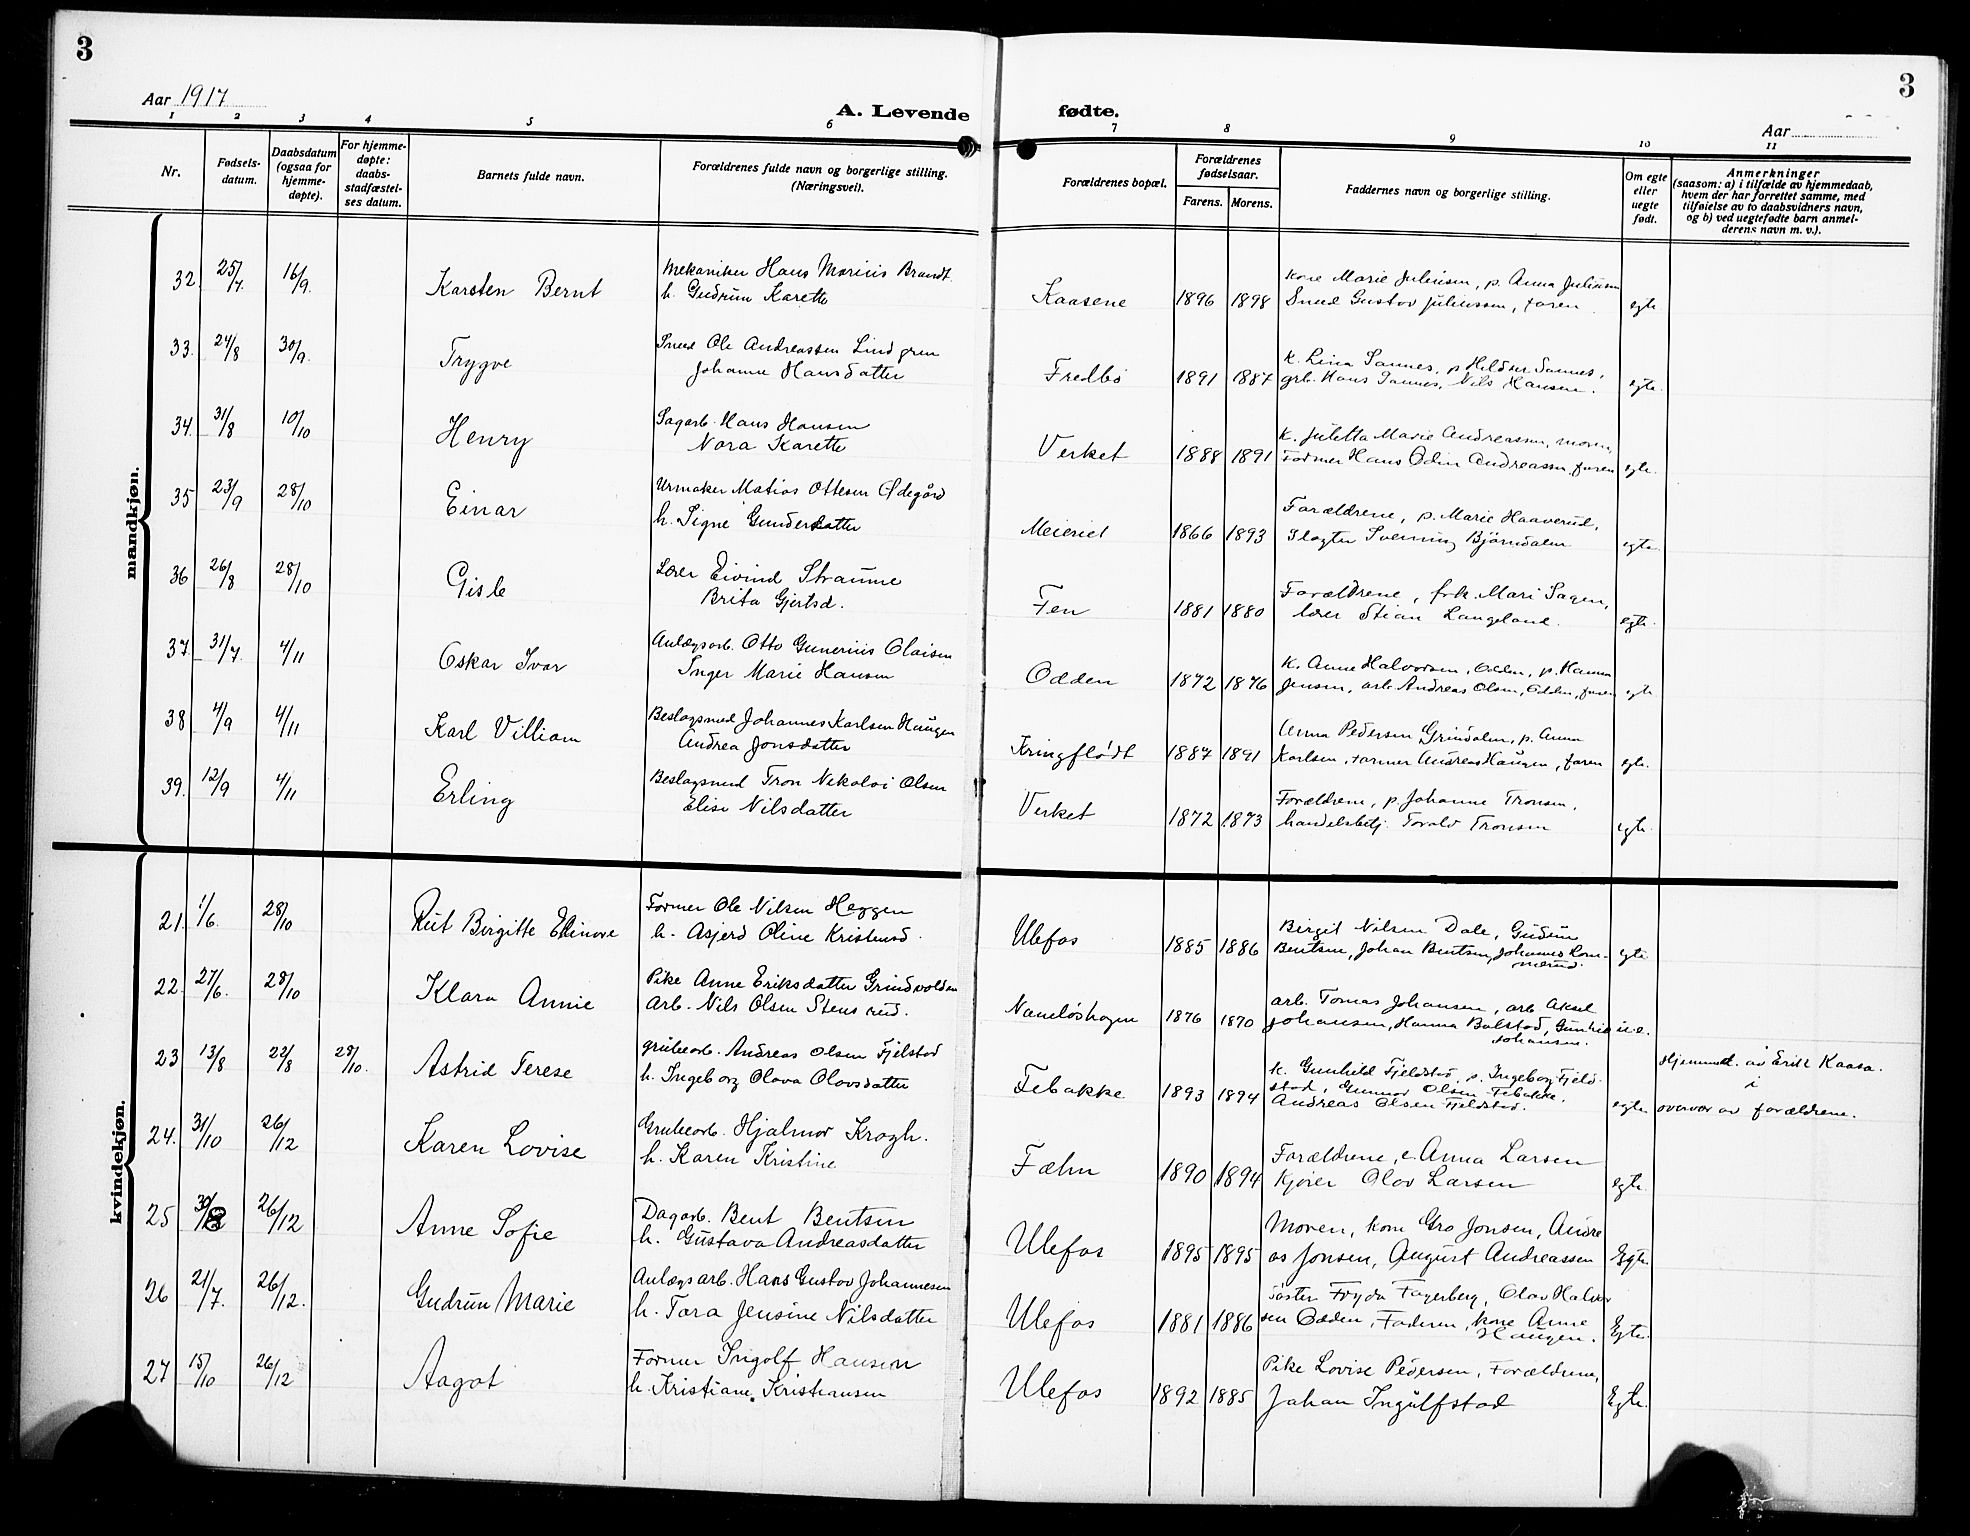 3
3
Aar 1917
A. Levende fødte.
Aar
1 2 3 4 5 6 7 8 9 10 11
Nr.
Fødsels-
datum.
Daabsdatum
(ogsaa for
hjemme-
døpte).
For hjemme-
døpte:
daabs-
stadfæstel-
ses datum.
Barnets fulde navn.
Forældrenes fulde navn og borgerlige stilling.
(Næringsvei).
Forældrenes bopæl.
Forældrenes
fødselsaar.
Farens. Morens.
Faddernes navn og borgerlige stilling.
Om egte
eller
uegte
født.
Anmerkninger
(saasom: a) i tilfælde av hjemmedaab,
hvem der har forrettet samme, med
tilføielse av to daabsvidners navn,
og b) ved uegtefødte barn anmel-
derens navn m. v.).
mandkjøn.
32. 25/7 16/9. Karsten Bernt
Mekaniker Hans Marius Brandt
h. Gudrun Karette
Kaasene 1896 1898
Kone Marie Juliusen, p. Anna Juliusen
Smed Gustav Juliussen, faren egte
33. 24/8 30/9. Trygve
Smed Ole Andreassen Lindgren
Johanne Hansdatter
Fredbo 1891 1887
K. Lina Sannes, p. Sannes,
grb. Hans Sannes, Nils Hansen. egte.
34. 31/8 10/10 Henry
Sagarb. Hans Hansen
Nora Karette
Verket 1888 1891
K. Juletta Marie Andreassen, moren,
Former Hans Odin Andreassen, faren egte.
35 23/9 28/10 Einar
Urmaker Matias Ottesen Ødegård
h. Signe Gundersdatter
Meieriet 1866 1893
Forældrene, p. Marie Haaverud,
Slagter Sverning Bjørndalen egte.
36 26/8 28/10 Gisle
Lærer Eivind Straume
Brita Gjertsd.
Fen 1881 1880
Forældrene, frk. Mari Sagen,
lærer Stian Langeland. egte.
37. 31/7. 4/11 Oskar Ivar
Anlægsarb. Otto Gunerius Olaisen
Inger Marie Hansen
Odden 1872 1876
K. Anne Halvorsen, Odden, p. Hanna
Jensen, arb. Andreas Olsen, Odden, faren egte
38 4/9 4/11 Karl Villiam
Beslagsmed Johannes Karlsen Haugen
Andrea Jonsdatter
Kringflødt 1887 1891
Anna Pedersen Grindalen, p. Anna
Karlsen, former Andreas Haugen, faren egte.
39. 12/9 4/11 Erling
Beslagsmed Tron Nikolai Olsen
Elise Nilsdatter
Verket 1872 1873
Forældrene, p. Johanne Tronsen,
handelsbetj. Torolv Tronsen egte.
kvindekjøn.
21. 1/6. 28/10 Rut Birgitte Elinore
Former Ole Nilsen Heggen
h. Asjerd Oline Kristensd.
Ulefos 1885 1886
Birgit Nilsen Dale, Gudrun
Bentsen, Johan Bentsen, Johannes Rom-
nerud. egte
22. 27/6. 28/10 Klara Annie
Pike Anne Eriksdatter Grindvolden
Arb. Nils Olsen Stensrud.
Navnløshagen 1876 1870
arb. Tomas Johansen, arb Aksel
Johansen, Hanna Bolstad, Gunhild
Johansen. u.e.
23 13/8 22/8 28/10. Astrid Terese
grubearb. Andreas Olsen Fjelstad
h. Ingeborg Olava Olavsdatter
Tebakke 1893 1894
K. Gunhild Fjeldstad, p. Ingeborg Fjeld-
stad, Gunnar Olsen Tebakke,
Andreas Olsen Fjeldstad. egte
Hjemmed. av Erik Kaasa.
i
overvær av forældrene.
24. 31/10 26/12 Karen Lovise
Grubearb. Hjalmar Krogh.
h. Karen Kristine
Fæhn 1890 1894
Forældrene, e. Anna Larsen
Kjører Olav Larsen egte.
25 30/8 26/12 Anne Sofie
Dagarb. Bent Bentsen
h. Gustava Andreasdatter
Ulefos 1895 1895
Moren, kone Gro Jonsen, Andre
as Jonsen, August Andreassen Egte.
26 21/7. 26/12. Gudrun Marie
Anlægsarb. Hans Gustav Johannesen
h. Tora Jensine Nilsdatter
Ulefos 1881 1886
Søster Fryda Fagerberg, Olav Halvor
sen Odden, Faderen, kone Anne
Haugen. Egte.
27 15/10 26/12 Aagot
Former Ingolf Hansen
h. Kristiane Kristiansen
Ulefos 1892 1885
Pike Lovise Pedersen, Forældrene,
Johan Ingulfstad Egte.